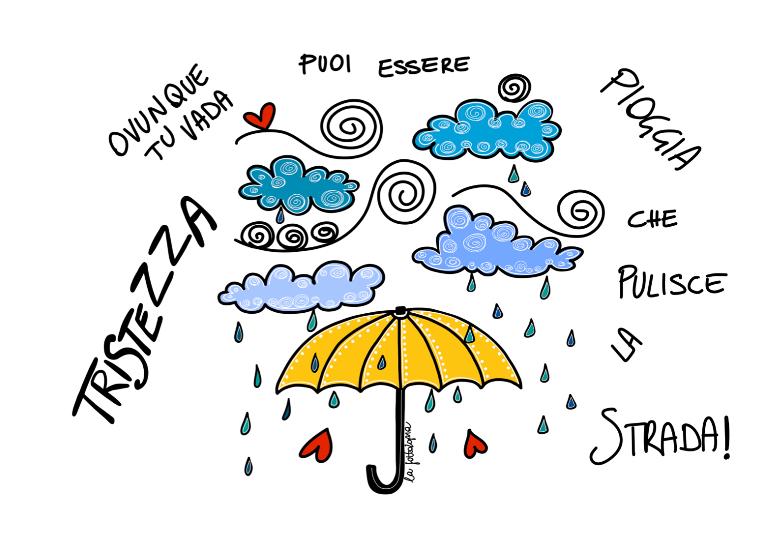 TRISTEZZA
OVUNQUE
TU VADA
PUOI ESSERE
PIOGGIA
CHE
PULISCE
LA
STRADA!